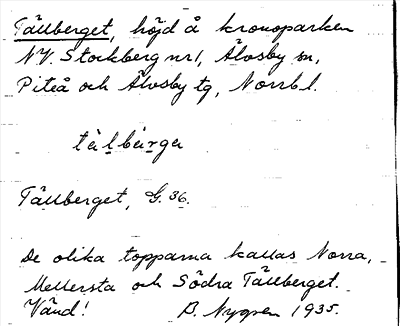 Tällberget, höjd å kronoparken
NV. Stockberg nr 1, Älvsby sn,
Piteå och Älvsby tg, Norrb. l.
tälbärge
Tällberget, G. 36.
De olika topparna kallas Norra,
Mellersta och Södra Tällberget.
Vänd! B. Nygren 1935.